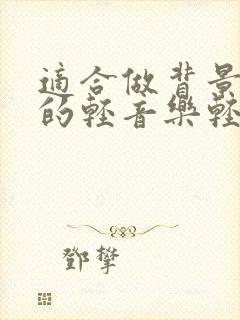 適合做背景
的輕音樂輕
鄧攀